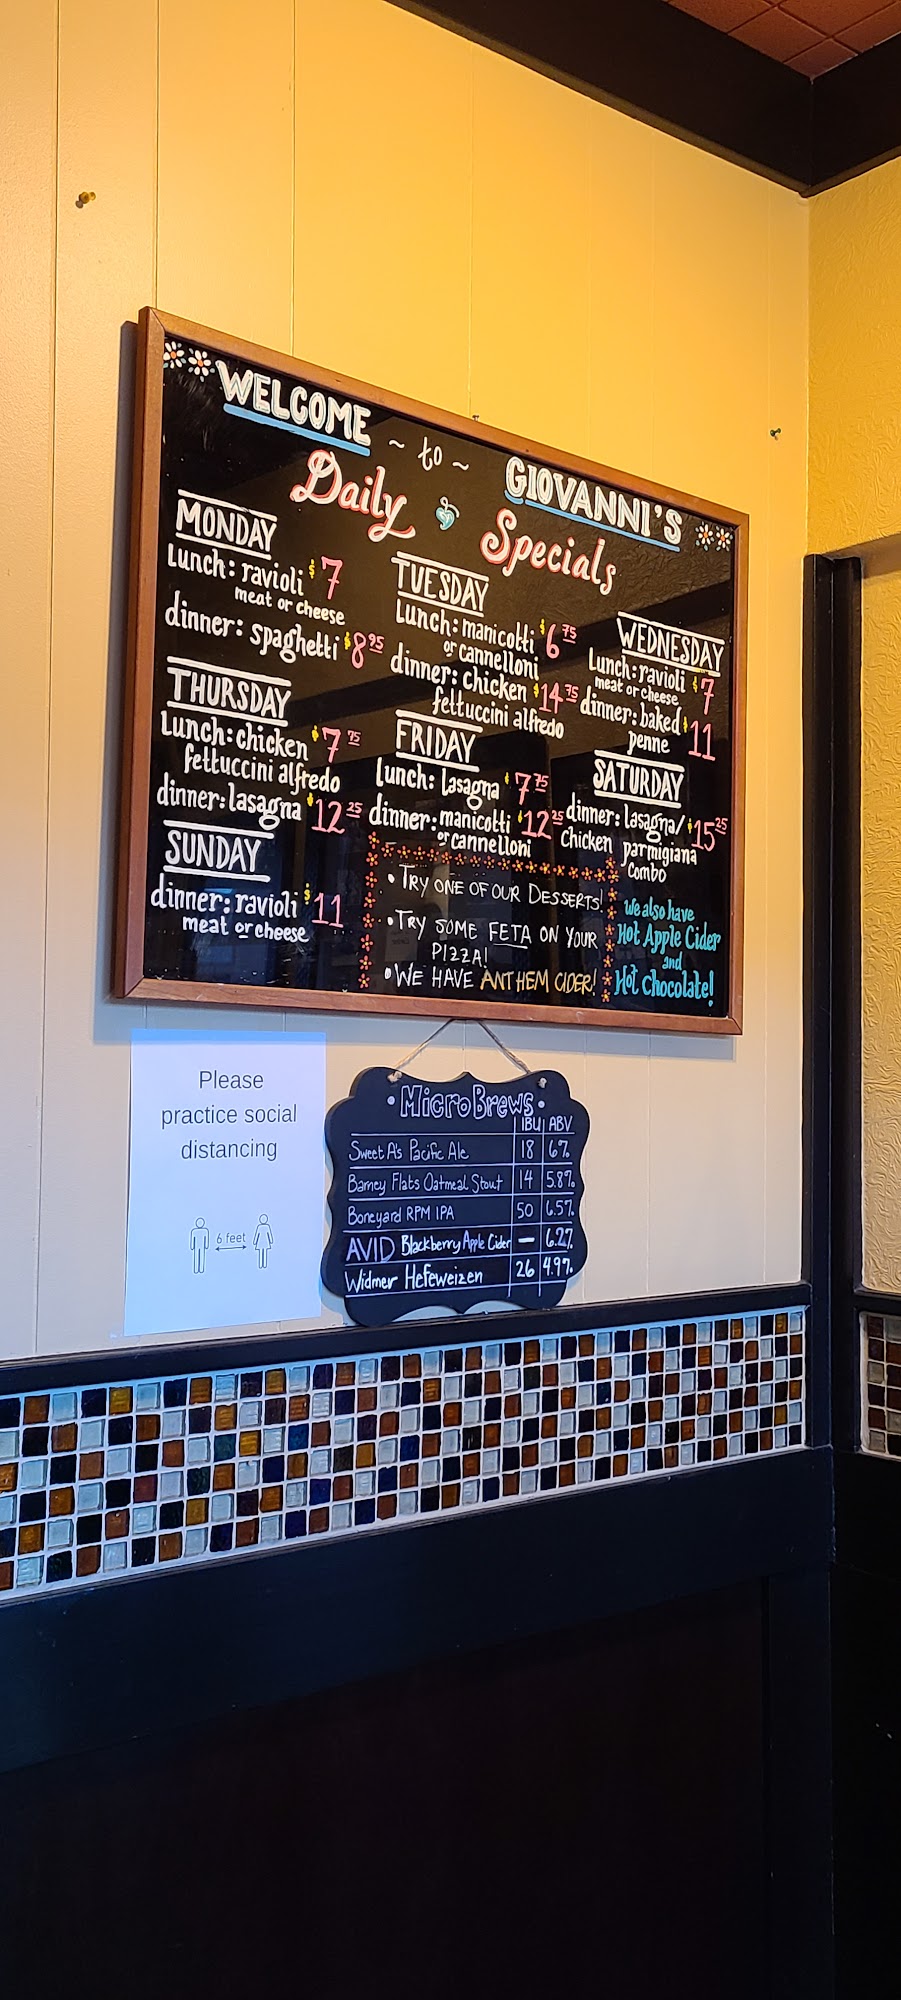 WELCOME ~ to ~ GIOVANNI'S
Daily Specials
MONDAY
Lunch: ravioli $7
meat or cheese
dinner: spaghetti $8 95
TUESDAY
Lunch: manicotti $6 75
or cannelloni
dinner: chicken $14 75
fettuccini alfredo
WEDNESDAY
Lunch: ravioli $7
meat or cheese
dinner: baked $11
penne
THURSDAY
Lunch: chicken $7 75
fettuccini alfredo
dinner: lasagna $12 25
FRIDAY
lunch: Lasagna $7 75
dinner: manicotti $12 25
or cannelloni
SATURDAY
dinner: lasagna/ $15 25
Chicken parmigiana
combo
SUNDAY
dinner: ravioli $11
meat or cheese
• TRY ONE OF OUR DESSERTS!
• TRY SOME FETA ON YOUR
PIZZA!
• WE HAVE ANTHEM CIDER!
We also have
Hot Apple Cider
and
Hot Chocolate!
Please
practice social
distancing
6 feet
• MicroBrews •
IBU ABV
Sweet A's Pacific Ale 18 6%
Barney Flats Oatmeal Stout 14 5.8%
Boneyard RPM IPA 50 6.5%
AVID Blackberry Apple Cider — 6.2%
Widmer Hefeweizen 26 4.9%